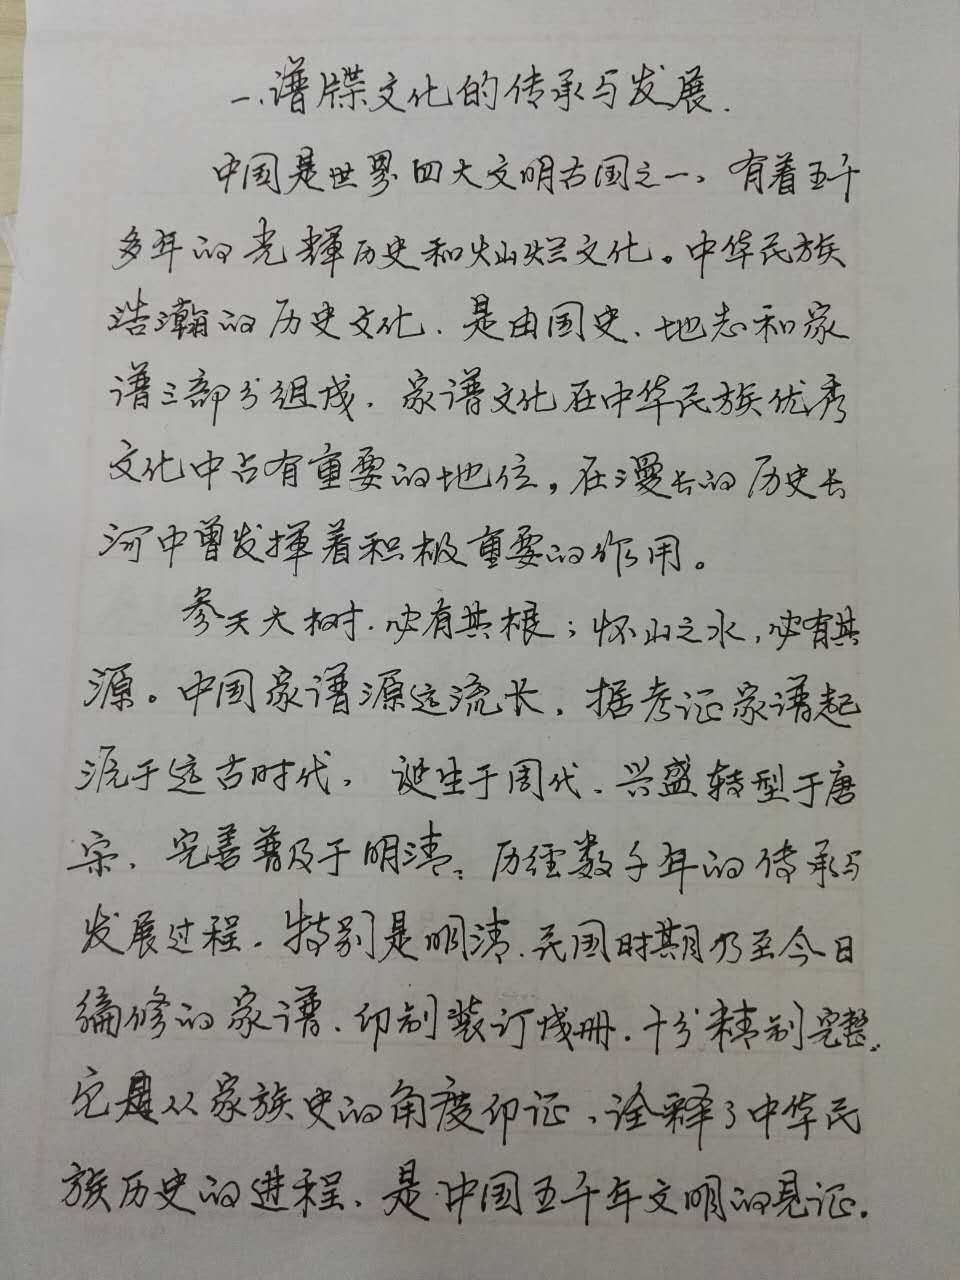 一、谱牒文化的传承与发展.
中国是世界四大文明古国之一、有着五千
多年的光辉历史和灿烂文化。中华民族
浩瀚的历史文化、是由国史、地志和家
谱三部分组成、家谱文化在中华民族优秀
文化中占有重要的地位,在漫长的历史长
河中曾发挥着积极重要的作用。
参天大树、必有其根;怀山之水,必有其
源。中国家谱源远流长,据考证家谱起
源于远古时代、诞生于周代、兴盛转型于唐
宋、完善普及于明清。历经数千年的传承与
发展过程。特别是明清、民国时期仍至今日
编修的家谱、印制装订成册、十分精制完整.
它是从家族史的角度印证、诠释了中华民
族历史的进程、是中国五千年文明的见证.